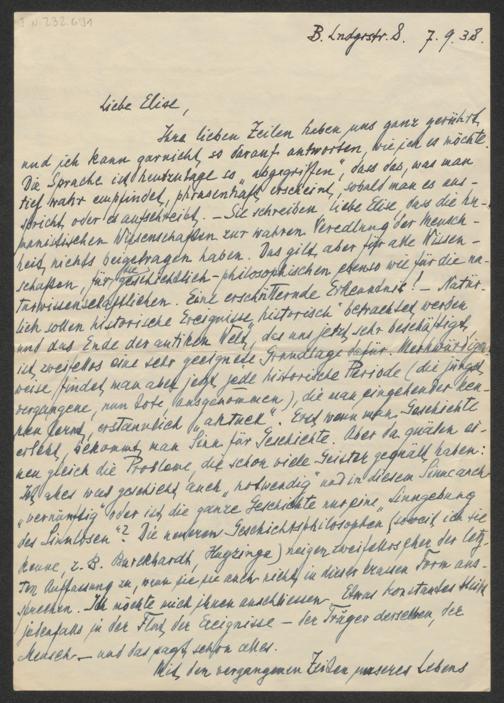 I.N. 232.691
B. Lndgrstr. 8. 7.9.38.
Liebe Elise,
Ihre lieben Zeilen haben uns ganz gerührt,
und ich kann garnicht so darauf antworten, wie ich es möchte.
Die Sprache ist heutzutage so „abgegriffen", dass das, was man
tief wahr empfindet, phrasenhaft erscheint, sobald man es aus-
spricht oder es aufschreibt. – Sie schreiben, liebe Elise, dass die hu-
manistischen Wissenschaften zur wahren Veredlung der Mensch-
heit nichts beigetragen haben. Das gilt aber für alle Wissen-
schaften, für die geschichtlich-philosophischen ebenso wie für die na-
turwissenschaftlichen. Eine erschütternde Erkenntnis! – Natür-
lich sollen historische Ereignisse „historisch" betrachtet werden
und das Ende der antiken Welt, das uns jetzt sehr beschäftigt,
ist zweifellos eine sehr geeignete Grundlage dafür. Merkwürdiger-
weise findet man aber jetzt jede historische Periode (die jüngst
vergangene, nun tote ausgenommen), die man eingehender ken-
nen lernt, erstaunlich „aktuell". Erst wenn man Geschichte
erlebt, bekommt man Sinn für Geschichte. Aber da quälen ei-
nen gleich die Probleme, die schon viele Geister gequält haben:
Ist alles was geschieht auch „notwendig" und in diesem Sinne auch
„vernünftig" oder ist die ganze Geschichte nur eine „Sinngebung
des Sinnlosen"? Die neueren Geschichtsphilosophen (soweit ich sie
kenne, z.B. Burckhardt, Huyzinga) neigen zweifellos eher der letz-
ten Auffassung zu, wenn sie sie auch nicht in dieser krassen Form aus-
sprechen. Ich möchte mich ihnen anschliessen. Etwas konstantes bleibt
jedenfalls in der Flut der Ereignisse – der Träger derselben, der
Mensch – und das sagt schon alles.
Mit den vergangenen Zeiten unseres Lebens